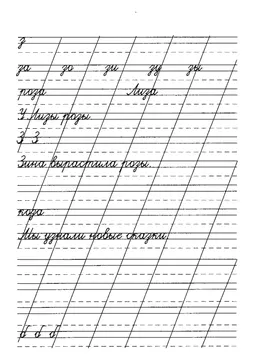 з
за зо зи зу зы
роза Лиза
У Лизы розы.
З З
Зина вырастила розы.
коза
Мы узнали новые сказки.
б б б